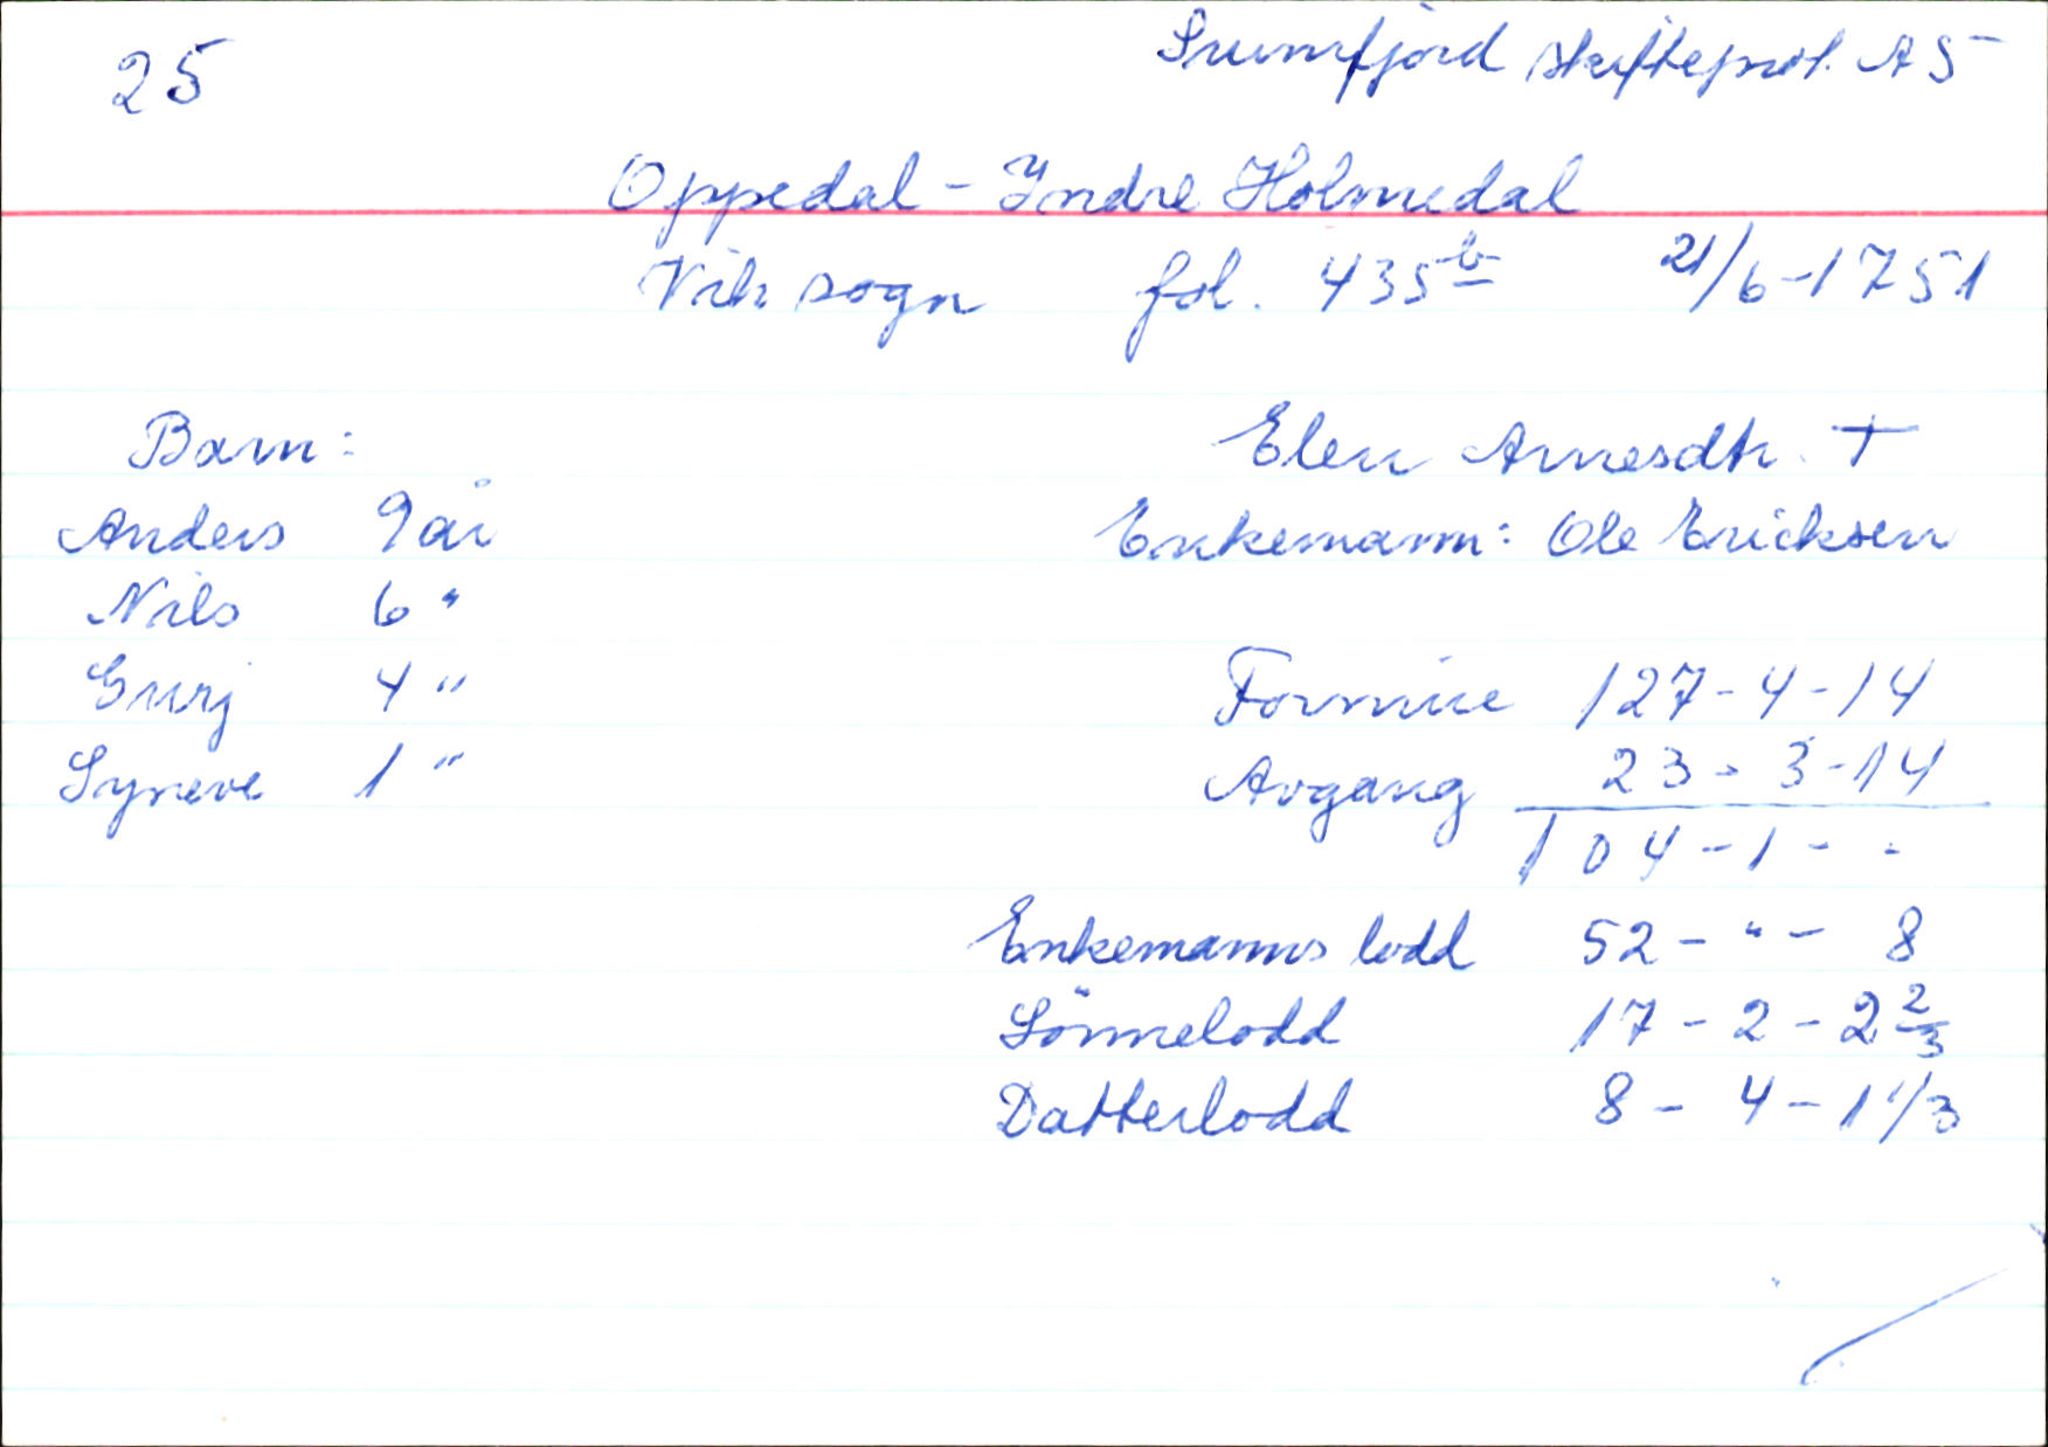 25
Sunnfjord skifteprot. A5
Oppedal - Yndre Holmedal
Vik sogn fol. 435b 21/6-1751
Barn:
Elen Arnesdtr. †
Anders 9 år
Enkemann: Ole Ericksen
Nils 6 "
Gurj 4 "
Formue 127-4-14
Syneve 1 "
Avgang 23-3-14
104-1- -
Enkemanns lodd 52 - " - 8
Sönnelodd 17 - 2 - 2 2/3
Datterlodd 8 - 4 - 1 1/3